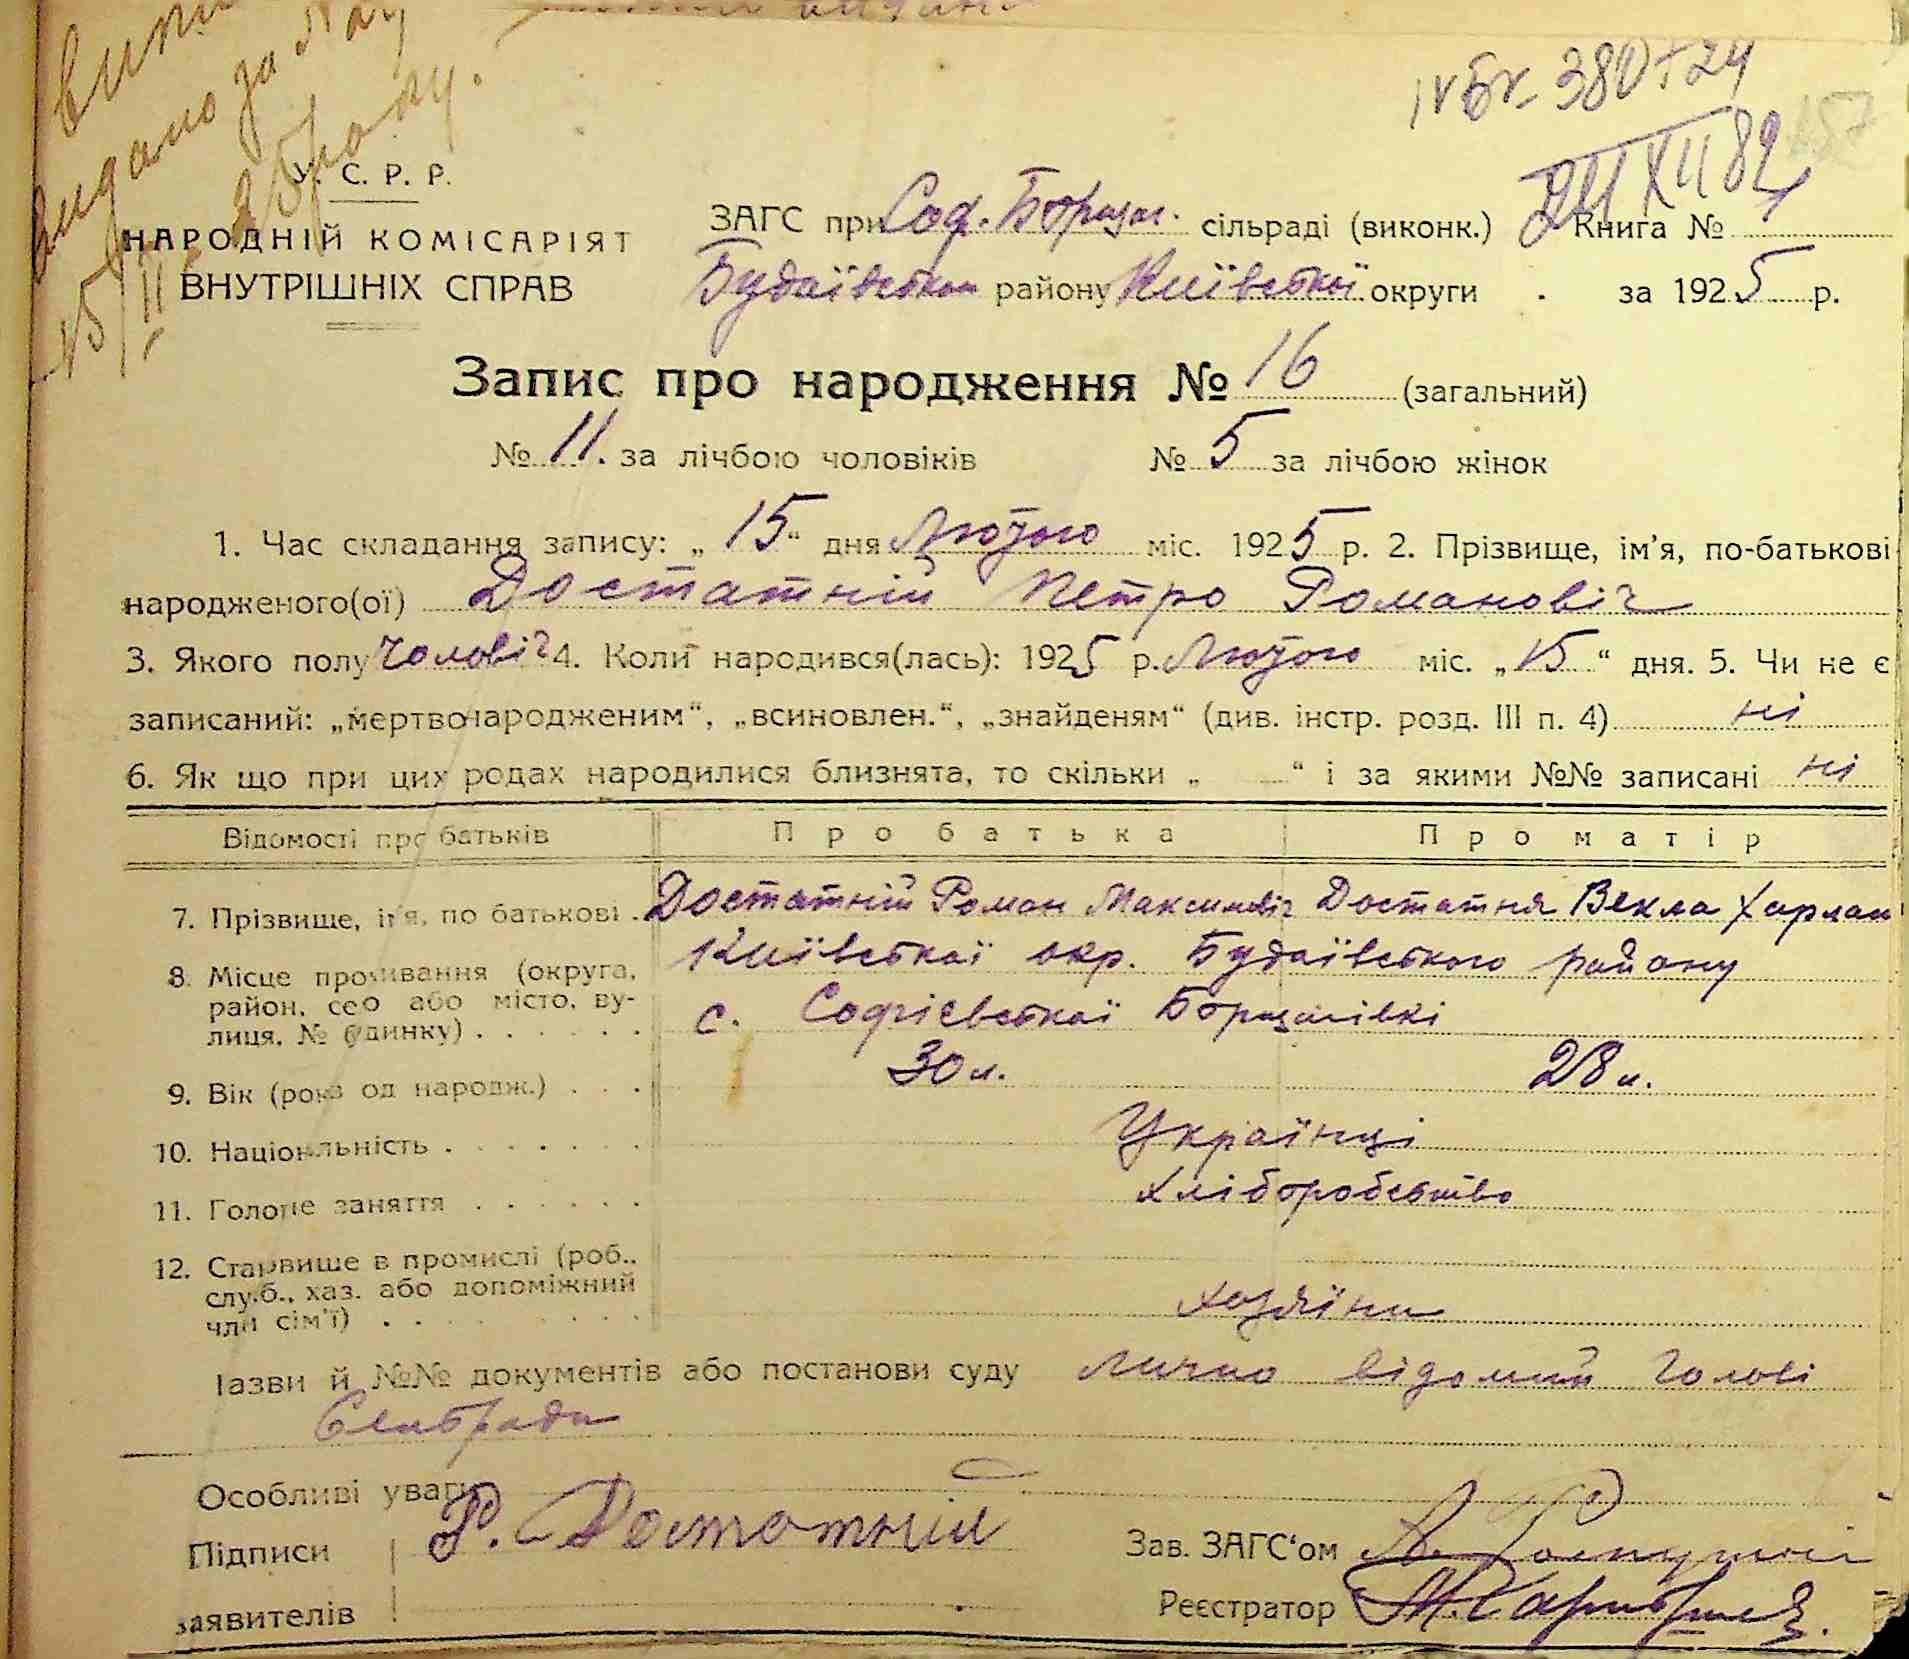 видано за
15/II 25 року.
ІV БК 380724
24 XII 82
У. С. Р. Р.
НАРОДНІЙ КОМІСАРІЯТ
ВНУТРІШНІХ СПРАВ
ЗАГС при Соф. Борщаг. сільраді (виконк.) Книга №
Будаївськ району Київської округи за 1925 р.
Запис про народження № 16 (загальний)
№ 11. за лічбою чоловіків № 5 за лічбою жінок
1. Час складання запису: „15“ дня Лютого міс. 1925 р. 2. Прізвище, ім’я, по-батькові
народженого(ої) Достатній Петро Романовіч
3. Якого полу чоловіч 4. Коли народився(лась): 1925 р. Лютого міс. „15“ дня. 5. Чи не є
записаний: „мертвонародженим“, „всиновлен.“, „знайденям“ (див. інстр. розд. III п. 4) ні
6. Як що при цих родах народилися близнята, то скільки „ “ і за якими №№ записані ні
Відомості про батьків Про батька Про матір
7. Прізвище, ім'я, по батькові . Достатній Роман Максимовіч Достатня Векла Харлам
8. Місце проживання (округа, Київської окр. Будаївського району
район, село або місто, ву-
лиця, № будинку) . . . . . . с. Софієвської Борщагівкі
9. Вік (років од народж.) . . . 30 л. 28 л.
10. Національність . . . . . . Українці
11. Головне заняття . . . . . . хліборобство
12. Становище в промислі (роб.,
служб., хаз. або допоміжний
член сім'ї) . . . . . . . . хозяїни
Назви й №№ документів або постанови суду Лично відомий Голові
Сельради
Особливі уваги
Підписи Р. Достотній Зав. ЗАГС‘ом
заявителів Реєстратор